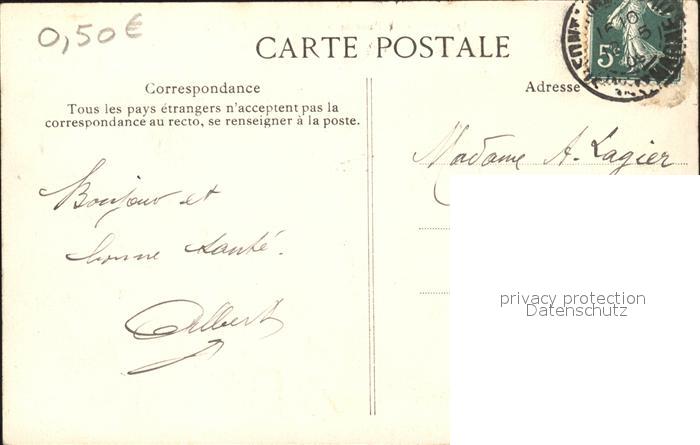 0,50€
CARTE POSTALE
5c
Correspondance
Tous les pays étrangers n'acceptent pas la
correspondance au recto, se renseigner à la poste.
Adresse
Madame A. Lagier
Bonjour et
bonne santé.
Albert
privacy protection
Datenschutz